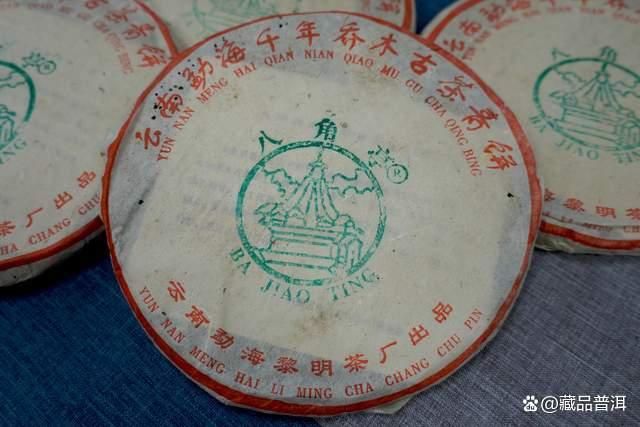 云南勐海千年乔木古茶青饼
YUN NAN MENG HAI QIAN NIAN QIAO MU GU CHA QING BING
八角亭
BA JIAO TING
云南勐海黎明茶厂出品
YUN NAN MENG HAI LI MING CHA CHANG CHU PIN
BA JIAO TING
勐海黎明茶厂出品
@藏品普洱